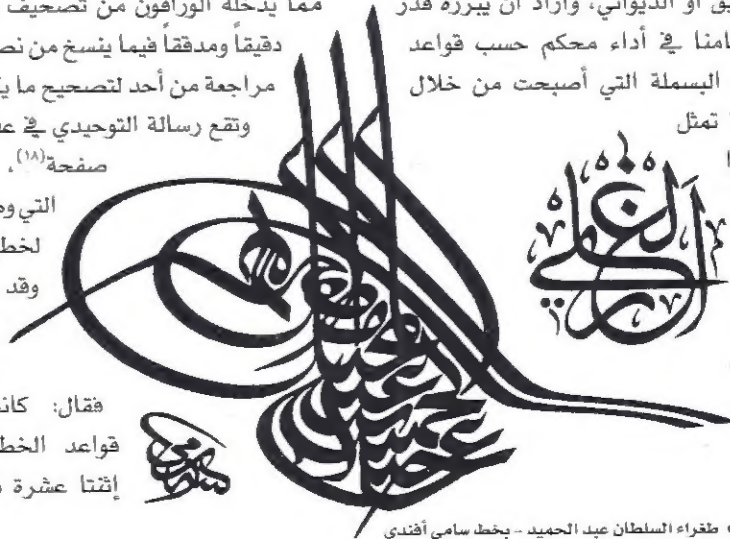 يق أو الديواني، وأراد أن يبرره قدر
امنا في أداء محكم حسب قواعد
البسملة التي أصبحت من خلال
تمثل
مما يدخله الوراقون من تصحيف
دقيقاً ومدققاً فيما ينسخ من نص
مراجعة من أحد لتصحيح ما
وتقع رسالة التوحيدي في
صفحة(١٨)،
التي
لخط
وقد
فقال: كان
قواعد الخط
إثنتا عشرة
الغازي
سامي
طغراء السلطان عبد الحميد - بخط سامي أفندي